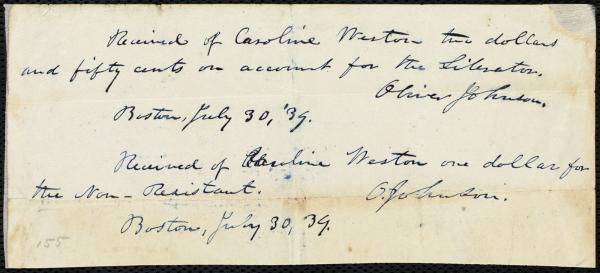 Received of Caroline Weston two dollars
and fifty cents on account for the Liberator.
Oliver Johnson.
Boston, July 30, '39.
Received of Caroline Weston one dollar for
the Non-Resistant.
O. Johnson.
Boston, July 30, 39.
155